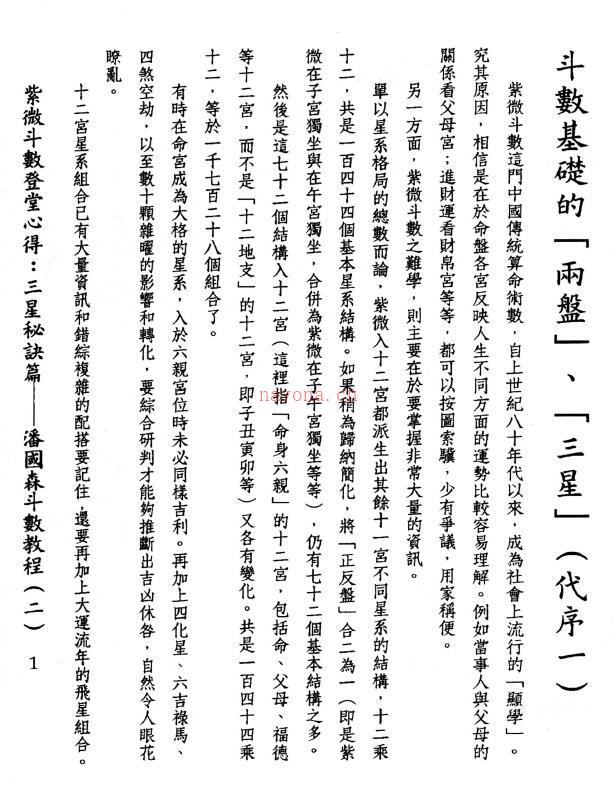 斗數基礎的「兩盤」、「三星」（代序一）
紫微斗數這門中國傳統算命術數，自上世紀八十年代以來，成為社會上流行的「顯學」。
究其原因，相信是在於命盤各宮反映人生不同方面的運勢比較容易理解。例如當事人與父母的
關係看父母宮；進財運看財帛宮等等，都可以按圖索驥，少有爭議，用家稱便。
另一方面，紫微斗數之難學，則主要在於要掌握非常大量的資訊。
單以星系格局的總數而論，紫微入十二宮都派生出其餘十一宮不同星系的結構，十二乘
十二，共是一百四十四個基本星系結構。如果稍為歸納簡化，將「正反盤」合二為一（即是紫
微在子宮獨坐與在午宮獨坐，合併為紫微在子午宮獨坐等等），仍有七十二個基本結構之多。
然後是這七十二個結構入十二宮（這裡指「命身六親」的十二宮，包括命、父母、福德
等十二宮，而不是「十二地支」的十二宮，即子丑寅卯等）又各有變化。共是一百四十四乘
十二，等於一千七百二十八個組合了。
有時在命宮成為大格的星系，入於六親宮位時未必同樣吉利。再加上四化星、六吉祿馬、
四煞空劫，以至數十顆雜曜的影響和轉化，要綜合研判才能夠推斷出吉凶休咎，自然令人眼花
瞭亂。
十二宮星系組合已有大量資訊和錯綜複雜的配搭要記住，還要再加上大運流年的飛星組合。
紫微斗數登堂心得：三星秘訣篇——潘國森斗數教程（二） 1